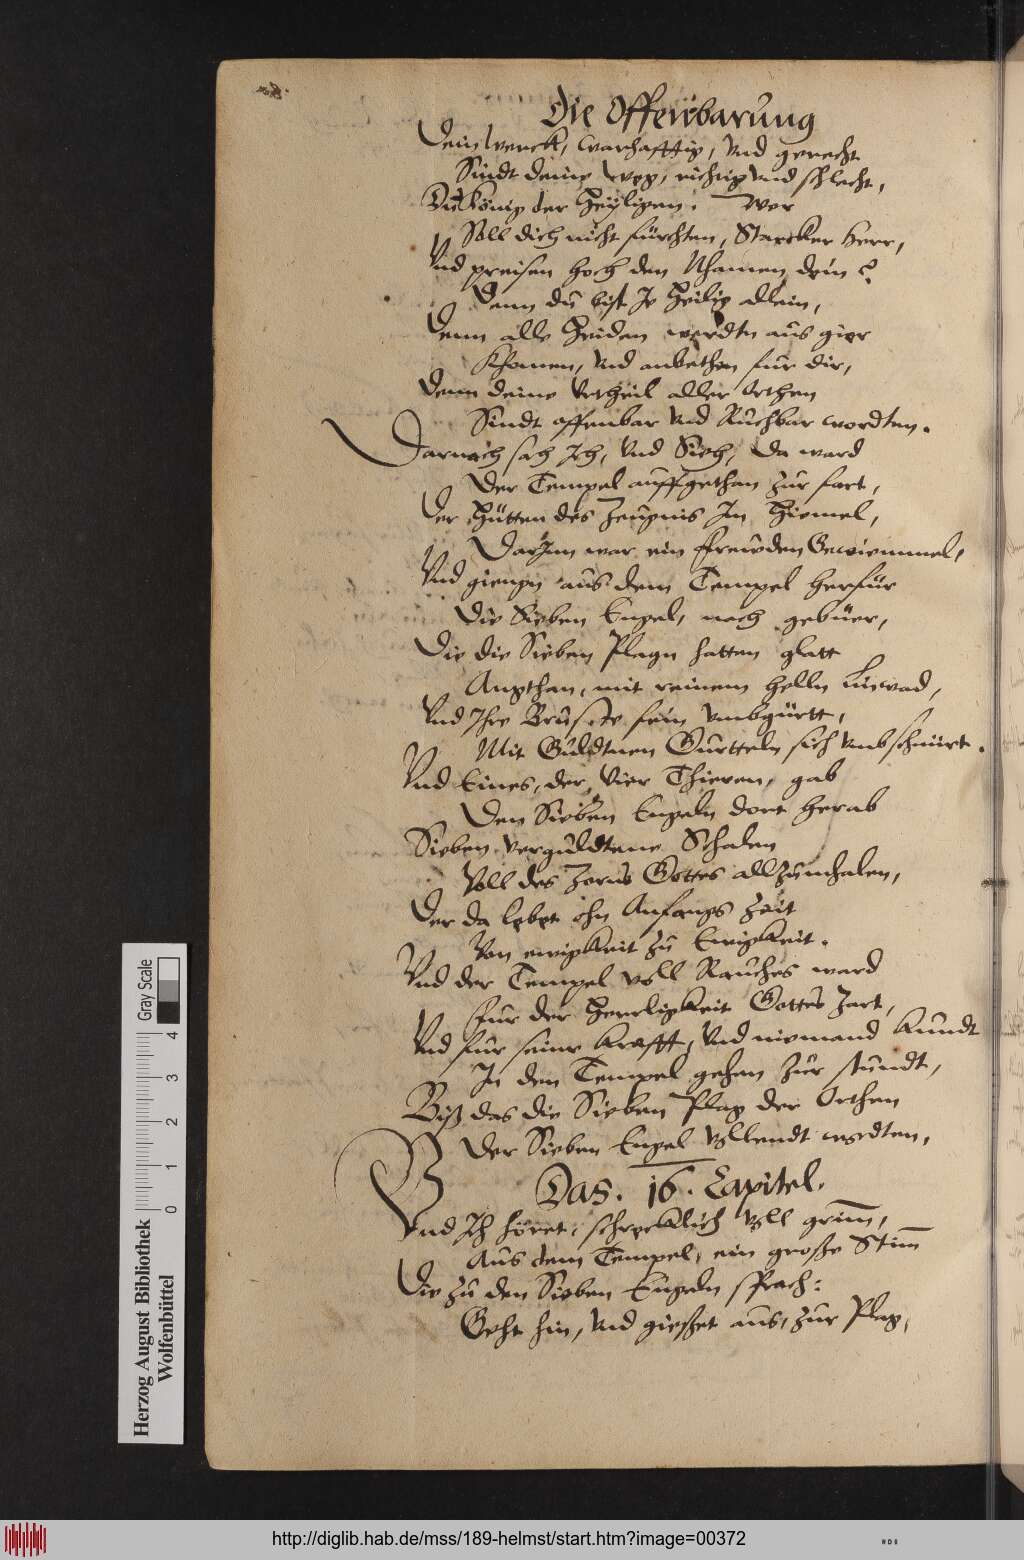 Die Offenbarung
Dein Werck, warhafftig, vnd gerecht
Sindt deine Weg, richtig vnd schlecht,
Du König der Heyligen. Wer
Soll dich nicht fürchten, Starcker Herr,
Vnd preisen hoch den Nhamen dein?
Denn du bist Je Heilig allein,
Denn alle Heiden werdtn aus gier
Khomen, vnd anbethen für dir,
Denn deine Vrtheil aller Orthen
Sindt offenbar vnd Ruchbar wordten.
Darnach sach Ich, vnd Sieh, da ward
Der Tempel auffgethan zur fart,
Der Hütten des Zeugnis Im Hiemel,
Darinn war ein freuden Gewiemmel,
Vnd giengn aus dem Tempel herfür
Die Sieben Engel, nach gebüer,
Die die Sieben Plagn hatten glatt
Angthan, mit reinem helln Linwad,
Vnd Ihre Brüste fein vmbgürtt,
Mit Guldtnen Gurtteln sich vmbschnürt.
Vnd Eines, der Vier Thieren, gab
Den Sieben Engeln dort herab
Sieben verguldtene Schalen
Voll des Zorns Gottes allzumhalen,
Der da lebet ohn Anfangs Zeit
Von ewigkeit zu Ewigkeit.
Vnd der Tempel voll Rauches ward
fur der Herrligkeit Gottes Zart,
Vnd fur seiner krafft, Vnd niemand kundt
In den Tempel gehen zur stundt,
Biß das die Sieben Plag der Orthen
Der Sieben Engel vollendt wordten,
Das. 16. Capitel.
Vnd Ich höret, schrecklich voll grim̅,
Aus dem Tempel, ein große Stim̅
Die zu den Sieben Engeln sprach:
Geht hin, vnd gießet aus, zur Plag,
Herzog August Bibliothek
Wolfenbüttel
Gray Scale
0 1 2 3 4
http://diglib.hab.de/mss/189-helmst/start.htm?image=00372